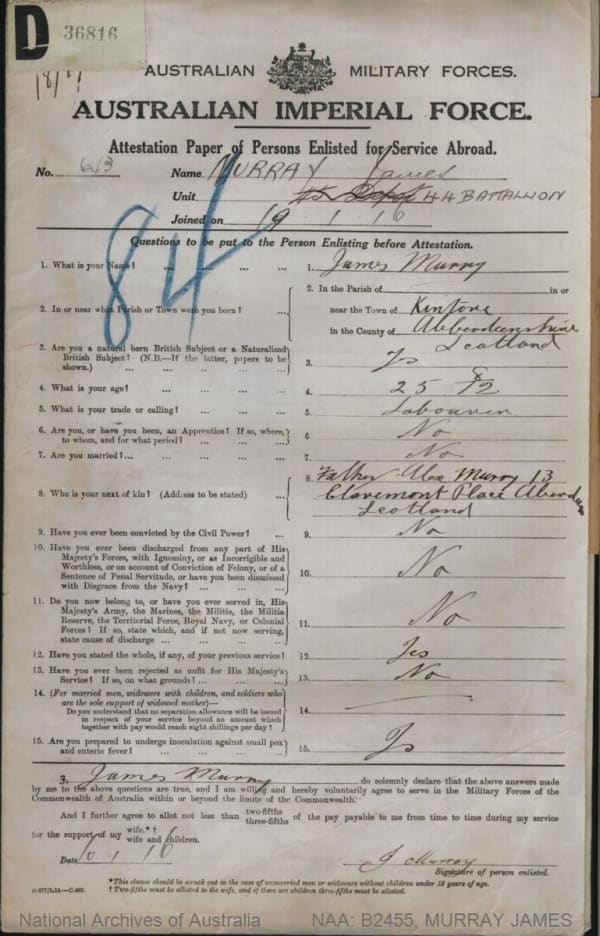 D 36816
AUSTRALIAN MILITARY FORCES.
AUSTRALIAN IMPERIAL FORCE.
Attestation Paper of Persons Enlisted for Service Abroad.
No. 643 Name MURRAY James
Unit 44 BATTALION
Joined on 19 1 16
84
Questions to be put to the Person Enlisting before Attestation.
1. What is your Name? ... ... ... ... 1. James Murry
2. In or near what Parish or Town were you born? ... 2. In the Parish of in or
near the Town of Kintore
in the County of Abberdeenshire
Scotland
3. Are you a natural born British Subject or a Naturalized
British Subject? (N.B.—If the latter, papers to be
shown.) ... ... ... ... ... 3. Yes
4. What is your age? ... ... ... ... 4. 25
5. What is your trade or calling? ... ... ... 5. Labourer
6. Are you, or have you been, an Apprentice? If so, where,
to whom, and for what period? ... ... ... 6. No
7. Are you married?... ... ... ... ... 7. No
8. Who is your next of kin? (Address to be stated) ... 8. Father Alex Murry 13
Claremont Place Aberdeen
Scotland
9. Have you ever been convicted by the Civil Power? ... 9. No
10. Have you ever been discharged from any part of His
Majesty's Forces, with Ignominy, or as Incorrigible and
Worthless, or on account of Conviction of Felony, or of a
Sentence of Penal Servitude, or have you been dismissed
with Disgrace from the Navy? ... ... ... 10. No
11. Do you now belong to, or have you ever served in, His
Majesty's Army, the Marines, the Militia, the Militia
Reserve, the Territorial Force, Royal Navy, or Colonial
Forces? If so, state which, and if not now serving,
state cause of discharge ... ... ... ... 11. No
12. Have you stated the whole, if any, of your previous service? 12. Yes
13. Have you ever been rejected as unfit for His Majesty's
Service? If so, on what grounds? ... ... ... 13. No
14. (For married men, widowers with children, and soldiers who
are the sole support of widowed mother)—
Do you understand that no separation allowance will be issued
in respect of your service beyond an amount which
together with pay would reach eight shillings per day? 14.
15. Are you prepared to undergo inoculation against small pox
and enteric fever? ... ... ... ... 15. Yes
I, James Murry do solemnly declare that the above answers made
by me to the above questions are true, and I am willing and hereby voluntarily agree to serve in the Military Forces of the
Commonwealth of Australia within or beyond the limits of the Commonwealth.
And I further agree to allot not less than two-fifths three-fifths of the pay payable to me from time to time during my service
for the support of my wife.*† wife and children.
Date 10 1 16 J Murray
Signature of person enlisted.
*This clause should be struck out in the case of unmarried men or widowers without children under 18 years of age.
† Two-fifths must be allotted to the wife, and if there are children three-fifths must be allotted.
National Archives of Australia NAA: B2455, MURRAY JAMES